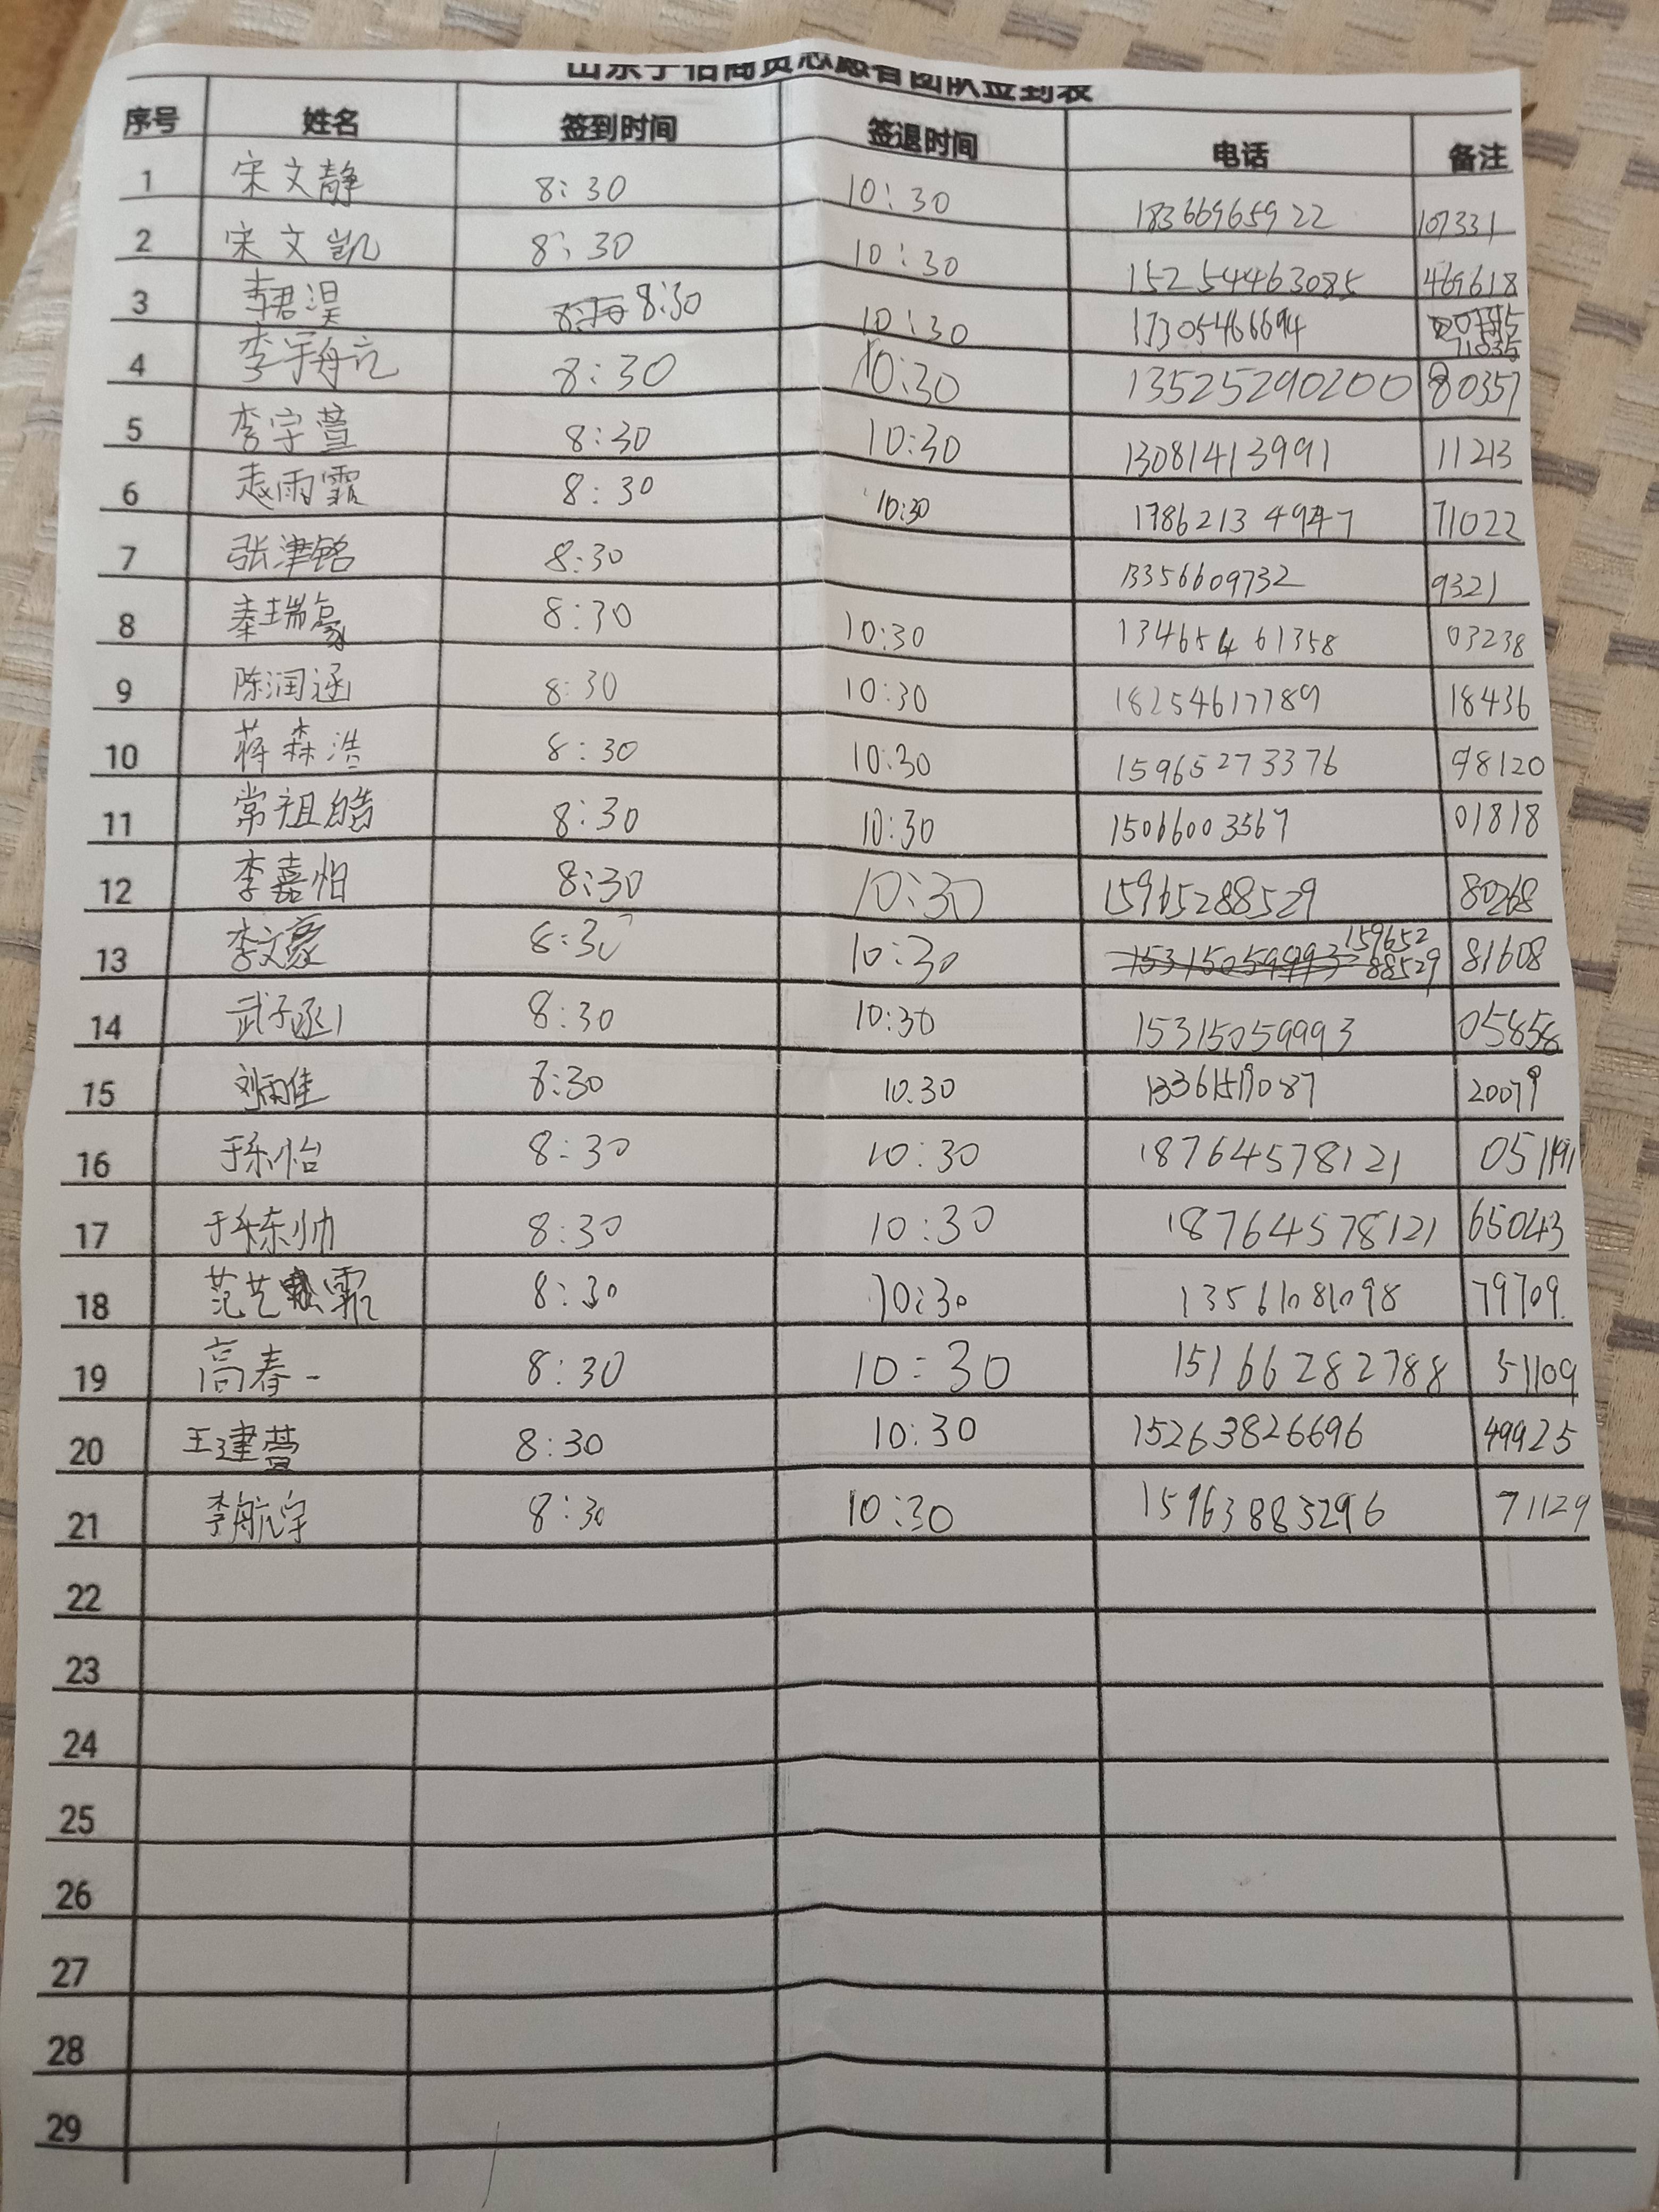 山东宇信商贸志愿者团队签到表
序号 姓名 签到时间 签退时间 电话 备注
1 宋文静 8:30 10:30 18366965922 107331
2 宋文凯 8:30 10:30 15254463085 469618
3 李君昊 8:30 10:30 17305466694 71035
4 李宇舟 8:30 10:30 13525290200 80357
5 李宇萱 8:30 10:30 13081413991 11213
6 赵雨霏 8:30 10:30 17862134947 71022
7 张津铭 8:30 13356609732 9321
8 秦瑞豪 8:30 10:30 13465461358 03238
9 陈润涵 8:30 10:30 18254617789 18436
10 蒋森浩 8:30 10:30 15965273376 98120
11 常祖皓 8:30 10:30 15066003567 01818
12 李嘉怡 8:30 10:30 15965288529 80268
13 李文豪 8:30 10:30 15315059993 15965288529 81608
14 武子丞 8:30 10:30 15315059993 05858
15 刘雨佳 8:30 10:30 20079
16 于东怡 8:30 10:30 18764578121
17 于东帅 8:30 10:30 18764578121 65043
18 范艺霏 8:30 10:30 13561081098 79709
19 高春一 8:30 10:30 15166282788 51109
20 王建萱 8:30 10:30 15263826696 49925
21 李航宇 8:30 10:30 15963883296 71129
22
23
24
25
26
27
28
29